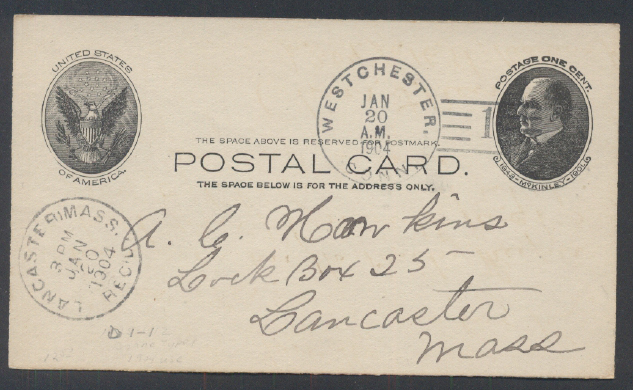 UNITED STATES
OF AMERICA.
WESTCHESTER.
JAN
20
A.M.
1904
CONN.
1
POSTAGE ONE CENT.
McKINLEY
THE SPACE ABOVE IS RESERVED FOR POSTMARK.
POSTAL CARD.
THE SPACE BELOW IS FOR THE ADDRESS ONLY.
LANCASTER, MASS.
3 PM
JAN
20
1904
REC'D
A. C. Hawkins
Lock Box 25
Lancaster
Mass